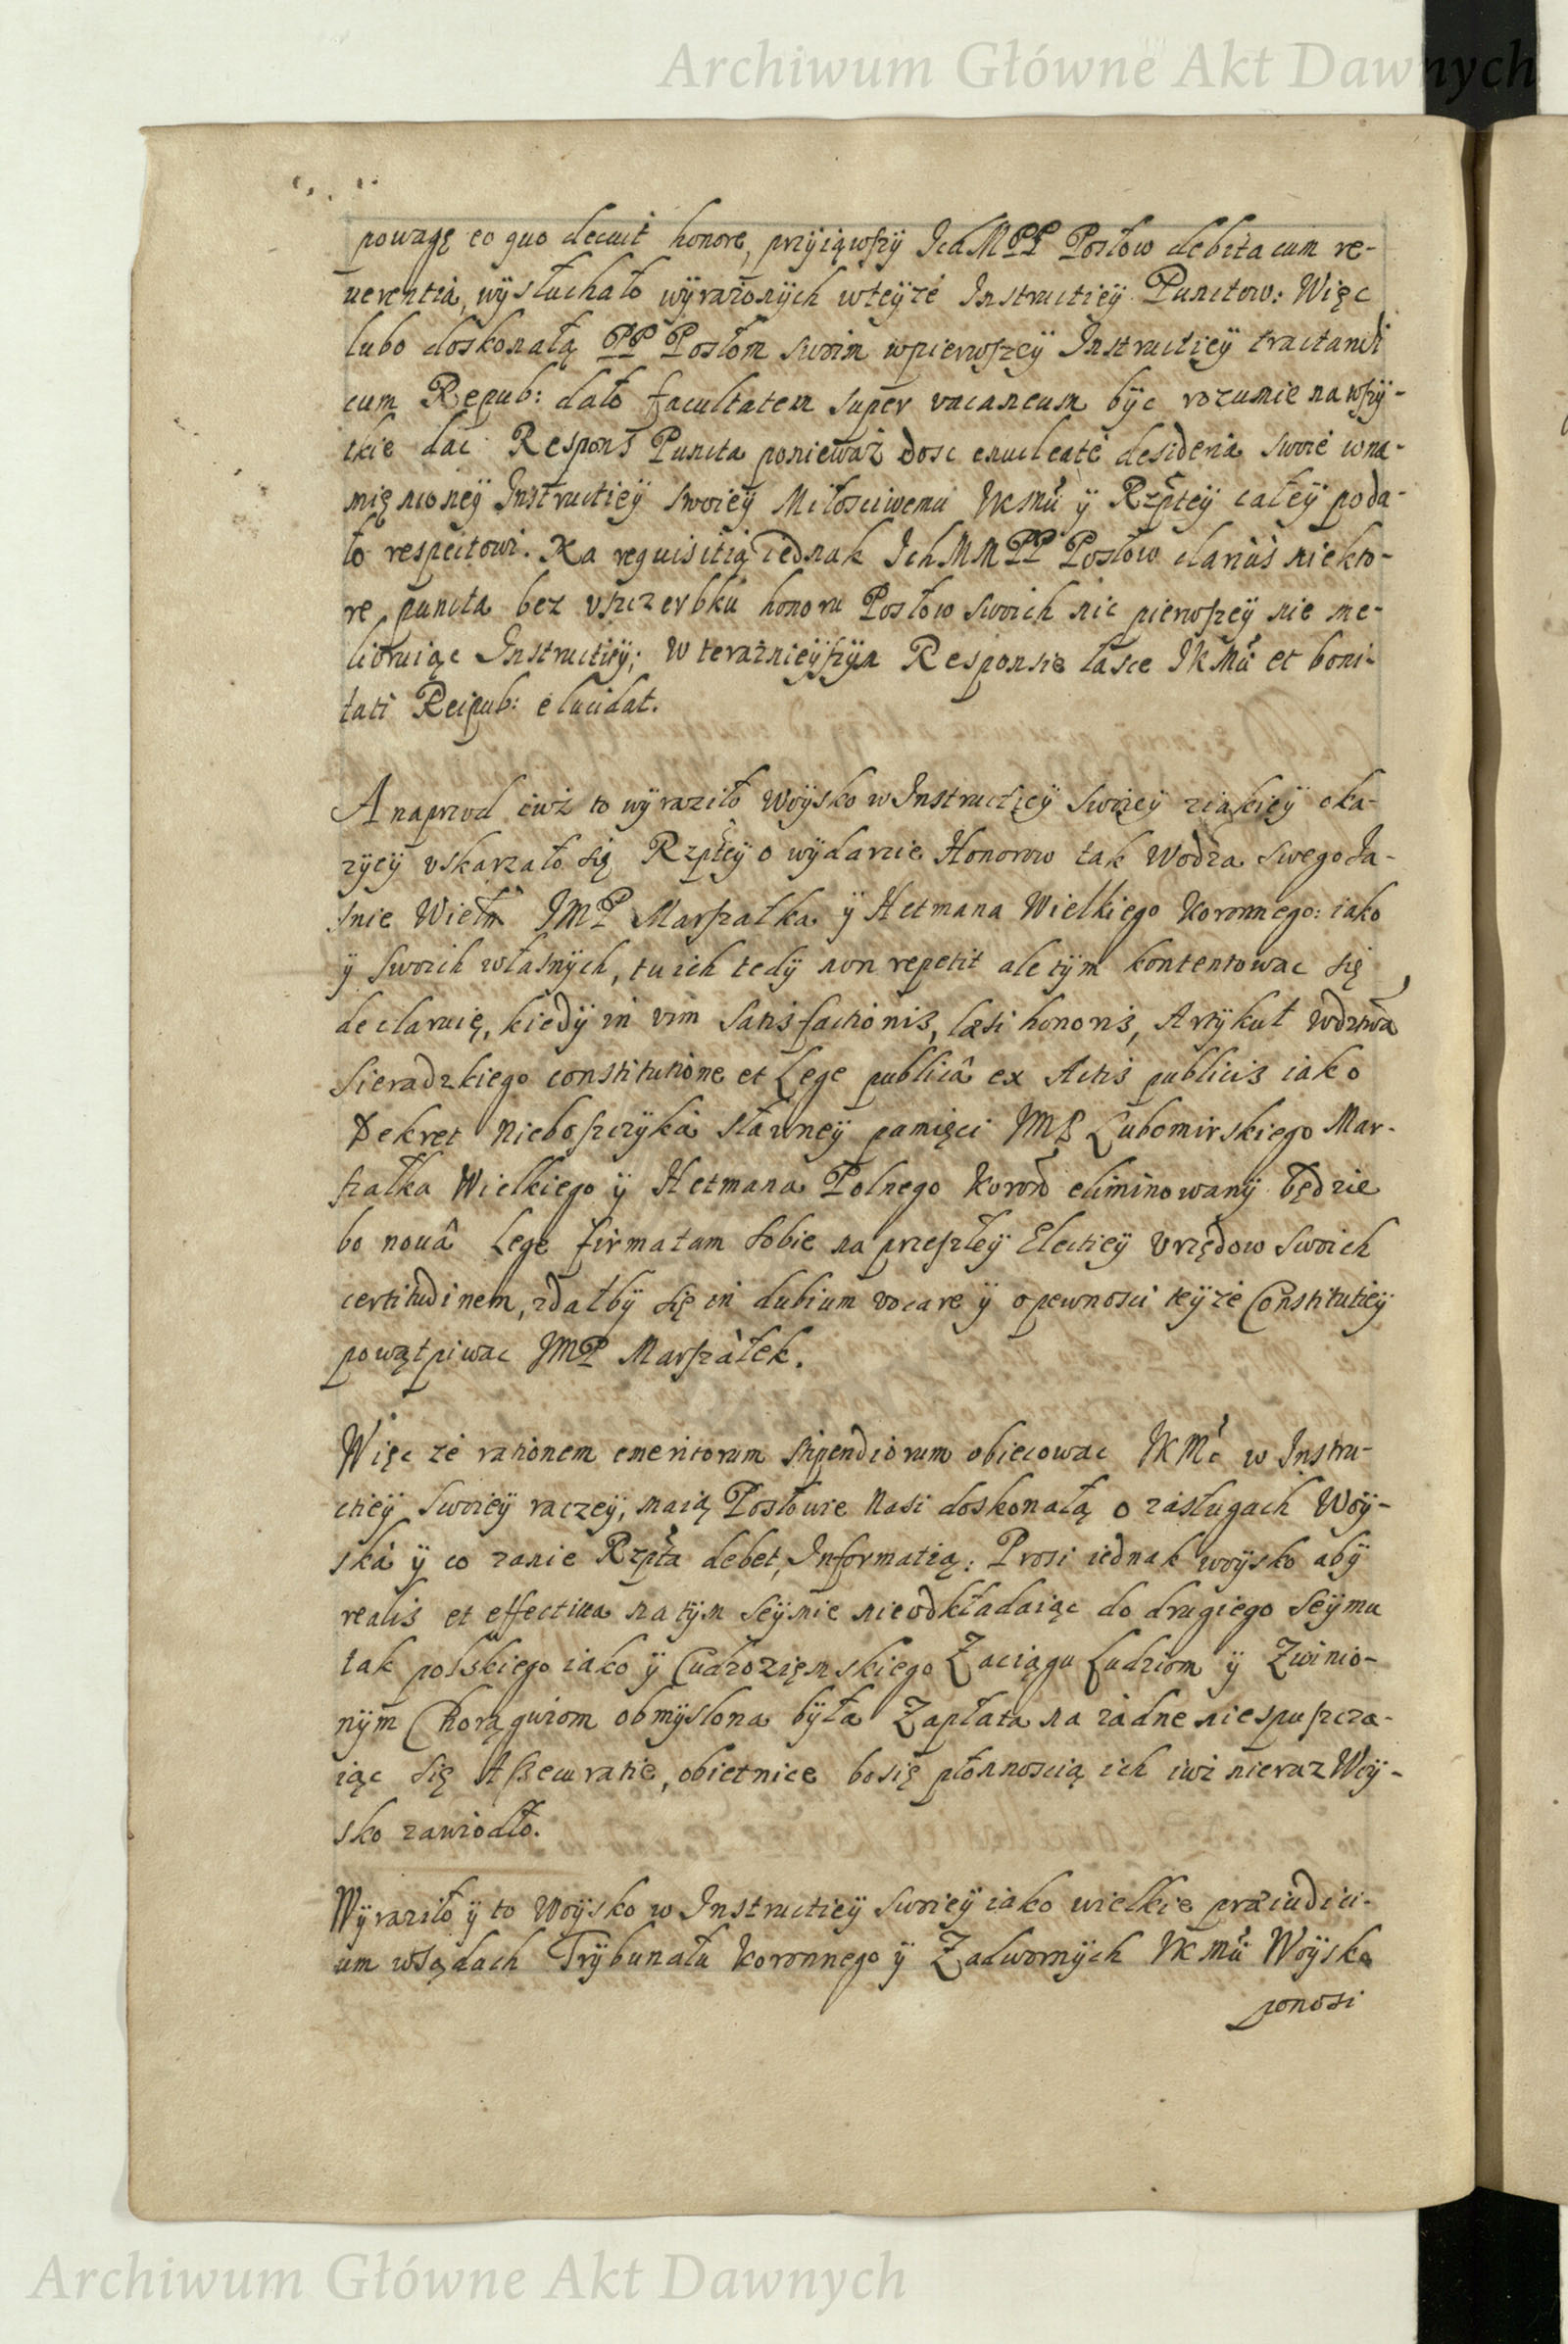 Archiwum Główne Akt Dawnych
powagę eo quo decuit honore, przyiąwszÿ IchMPP Posłow debita cum re-
uerentia, wÿsłuchało wÿrażonÿch wteÿże Instructieÿ Punctow: Więc
lubo doskonałą PP Posłom swoim wpierwszeÿ Instructieÿ tractandi
cum Repub: dało facultatem super vacaneum bÿc rozumie na wszÿ-
tkie dac Respons Puncta ponieważ dosc enucleate desideria swoie wna-
mięnioneÿ Instructieÿ swoieÿ Miłosciwemu JKMu ÿ Rzpteÿ całeÿ poda-
ło respectowi. Na requisitią iednak IchMMPP Posłow clarius niekto-
re puncta bez vszczerbku honoru Posłow swoich nic pierwszeÿ nie me-
lioruiąc Instructieÿ; w teraznieÿszÿm Responsie łasce JKMu et boni-
tati Reipub: elucidat.
A naprzod iuż to wÿraziło Woÿsko w Instructieÿ swoieÿ ziakieÿ oka-
zÿeÿ vskarzało się Rzpteÿ o wÿdarcie Honorow tak Wodza swego Ja-
snie Wielm JMP Marszałka ÿ Hetmana Wielkiego Koronnego: iako
ÿ swoich własnÿch, tu ich tedÿ non repetit ale tÿm kontentowac się
declaruię, kiedÿ in vim satisfactionis, læsi honoris, Artÿkuł Wdztwa
Sieradzkiego constitutione et Lege publicâ ex Actis publicis iako
Dekret Nieboszczÿka sławneÿ pamięci JMP Lubomirskiego Mar-
szałka Wielkiego ÿ Hetmana Polnego Koron eliminowanÿ będzie
bo nouâ Lege firmatam sobie na przeszłeÿ Electieÿ Vrzędow swoich
certitudinem, zdałbÿ się in dubium vocare ÿ opewnosci teÿże Constitutieÿ
powątpiwac JMP Marszałek.
Więc że rationem emeritorum stipendiorum obiecowac JKMc w Instru-
ctieÿ swoieÿ raczeÿ, maią Posłowie Nasi doskonałą o zasługach Woÿ-
ska ÿ co zanie Rzpta debet, Informatią: Prosi iednak woÿsko abÿ
realis et effectiua na tÿm Seÿmie nieodkładaiąc do drugiego Seÿmu
tak polskiego iako ÿ Cudzozięmskiego Zaciągu Ludziom ÿ Zwinio-
nÿm Chorągwiom obmÿslona bÿła Zapłata na żadne niespuszcza-
iąc się Assecuratie, obietnice bosię płonnoscią ich iuż nieraz Woÿ-
sko zawiodło.
Wÿraziło ÿ to Woÿsko w Instructieÿ swoieÿ iako wielkie præiudici-
um wsądach Trÿbunału Koronnego ÿ Zadwornÿch JKMu Woÿsko
ponosi
Archiwum Główne Akt Dawnych